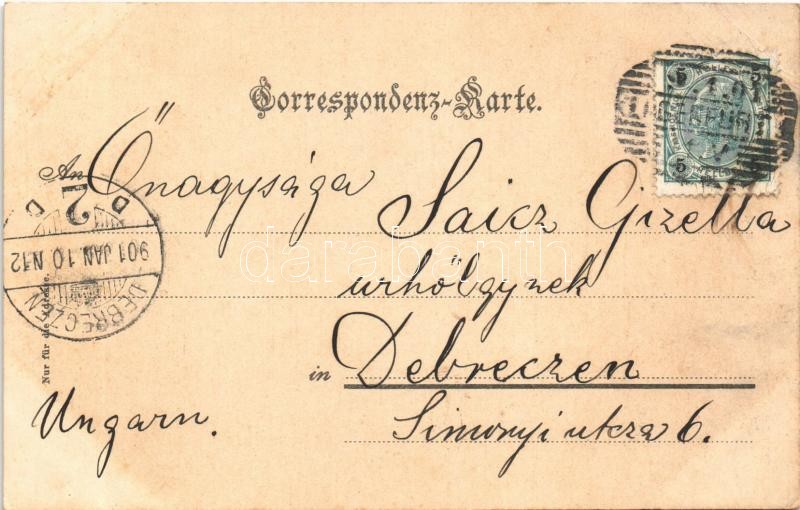 Correspondenz-Karte.
An Őnagysága
Saicz Gizella
úrhölgynek
in Debreczen
Simonyi utcza 6.
Ungarn.
Nur für die Adresse.
DEBRECZEN
901 JAN. 10 N12
D 2 D
5 5
5
darabanth